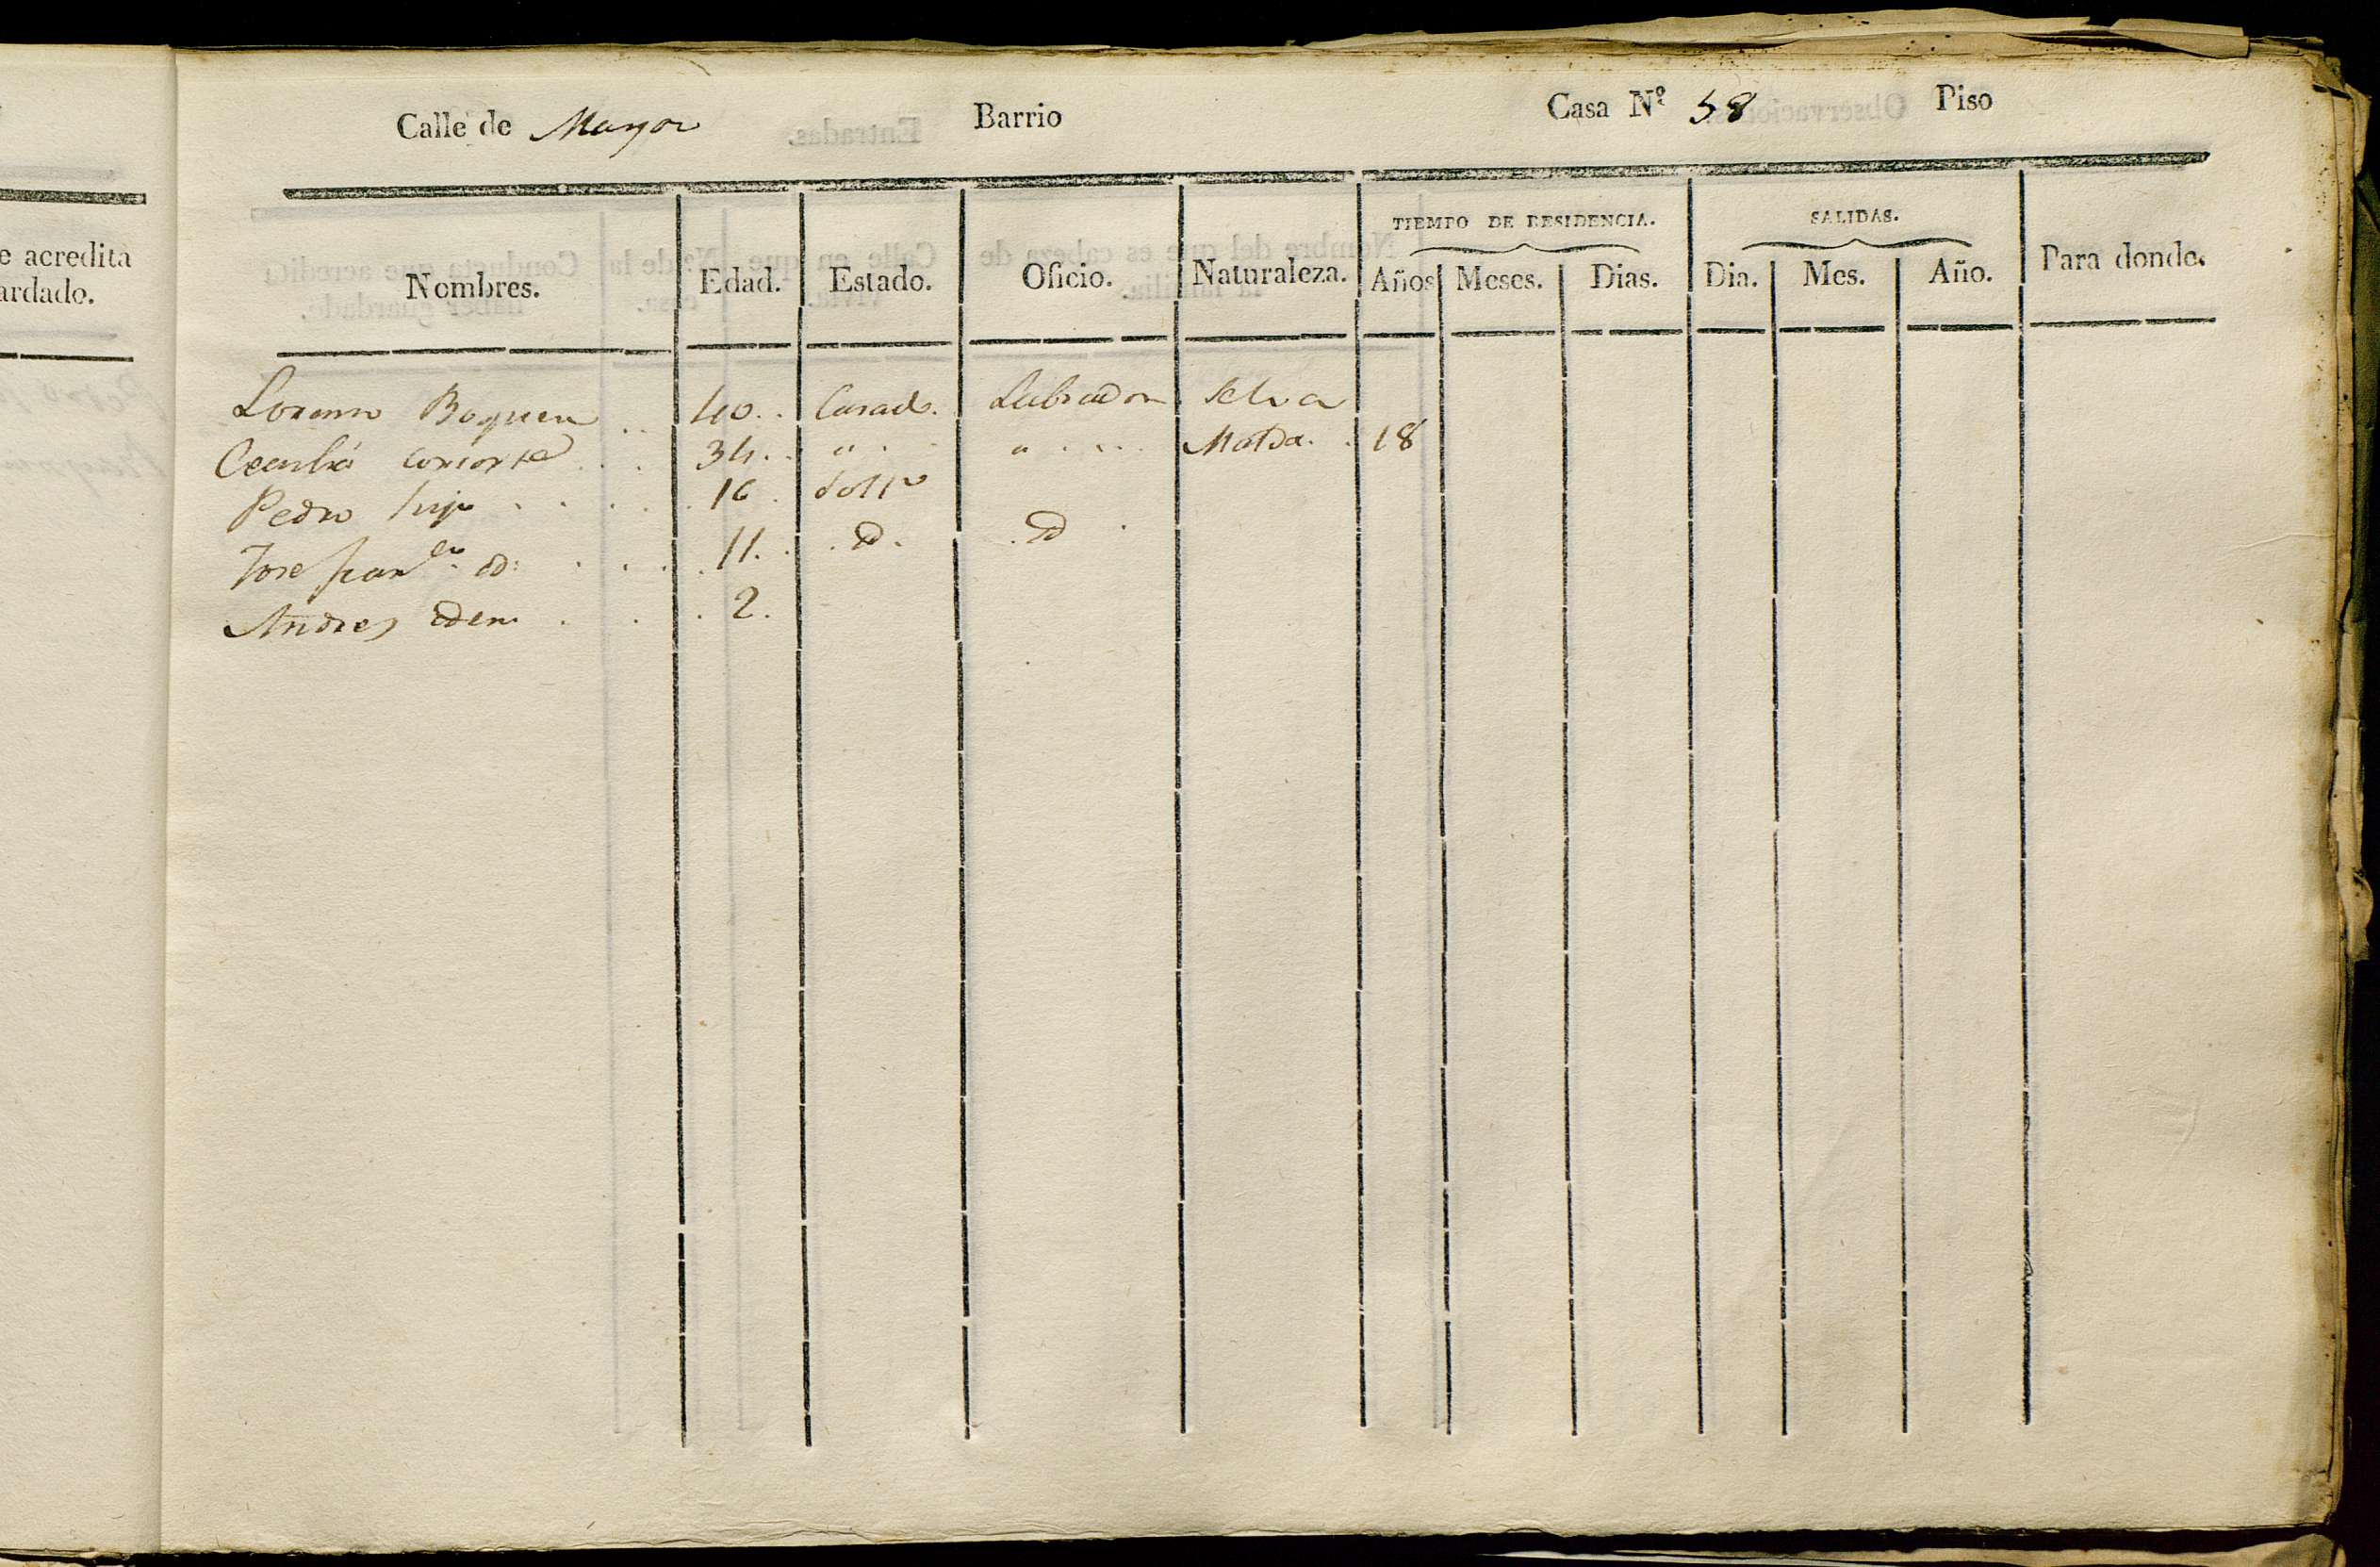 e acredita
ardado.
Calle de Mayor Barrio Casa Nº 58 Piso
TIEMPO DE RESIDENCIA. SALIDAS.
Nombres. Edad. Estado. Oficio. Naturaleza. Años Meses. Dias. Dia. Mes. Año. Para donde.
Lorenzo 40.. Casado. Labrador Selva
Cecilia consorte ... 34.. " . " .... Malda. . 18
Pedro hijo ..... 16 . Solt.º
Jose Fran.co id: .... 11. . . id. . id .
Andres idem . . . 2.